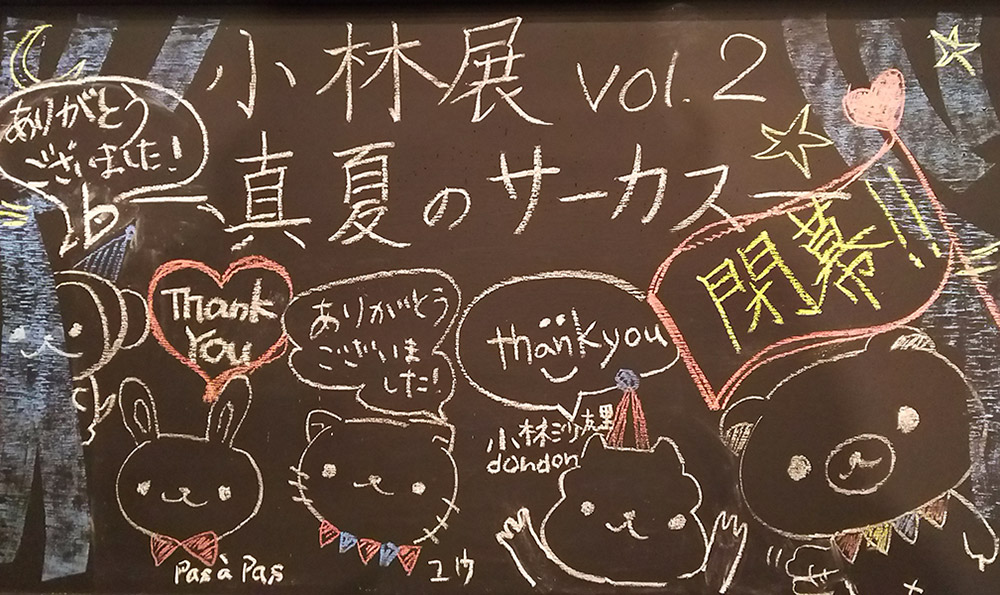 小林展 vol.2
真夏のサーカス
開幕!!
ありがとう
ございました!
Thank
You
ありがとう
ございま
した!
thankyou
小林沙友里
dondon
Pas à Pas
ユウ